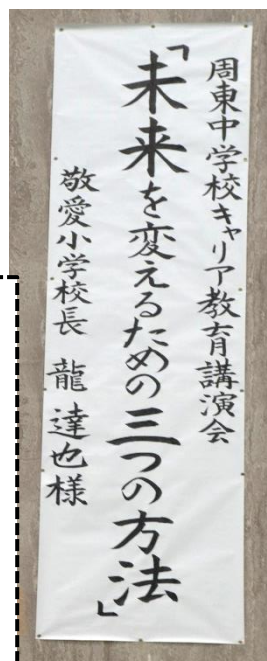 周東中学校キャリア教育講演会
「未来を変えるための三つの方法」
敬愛小学校長 龍 達也様